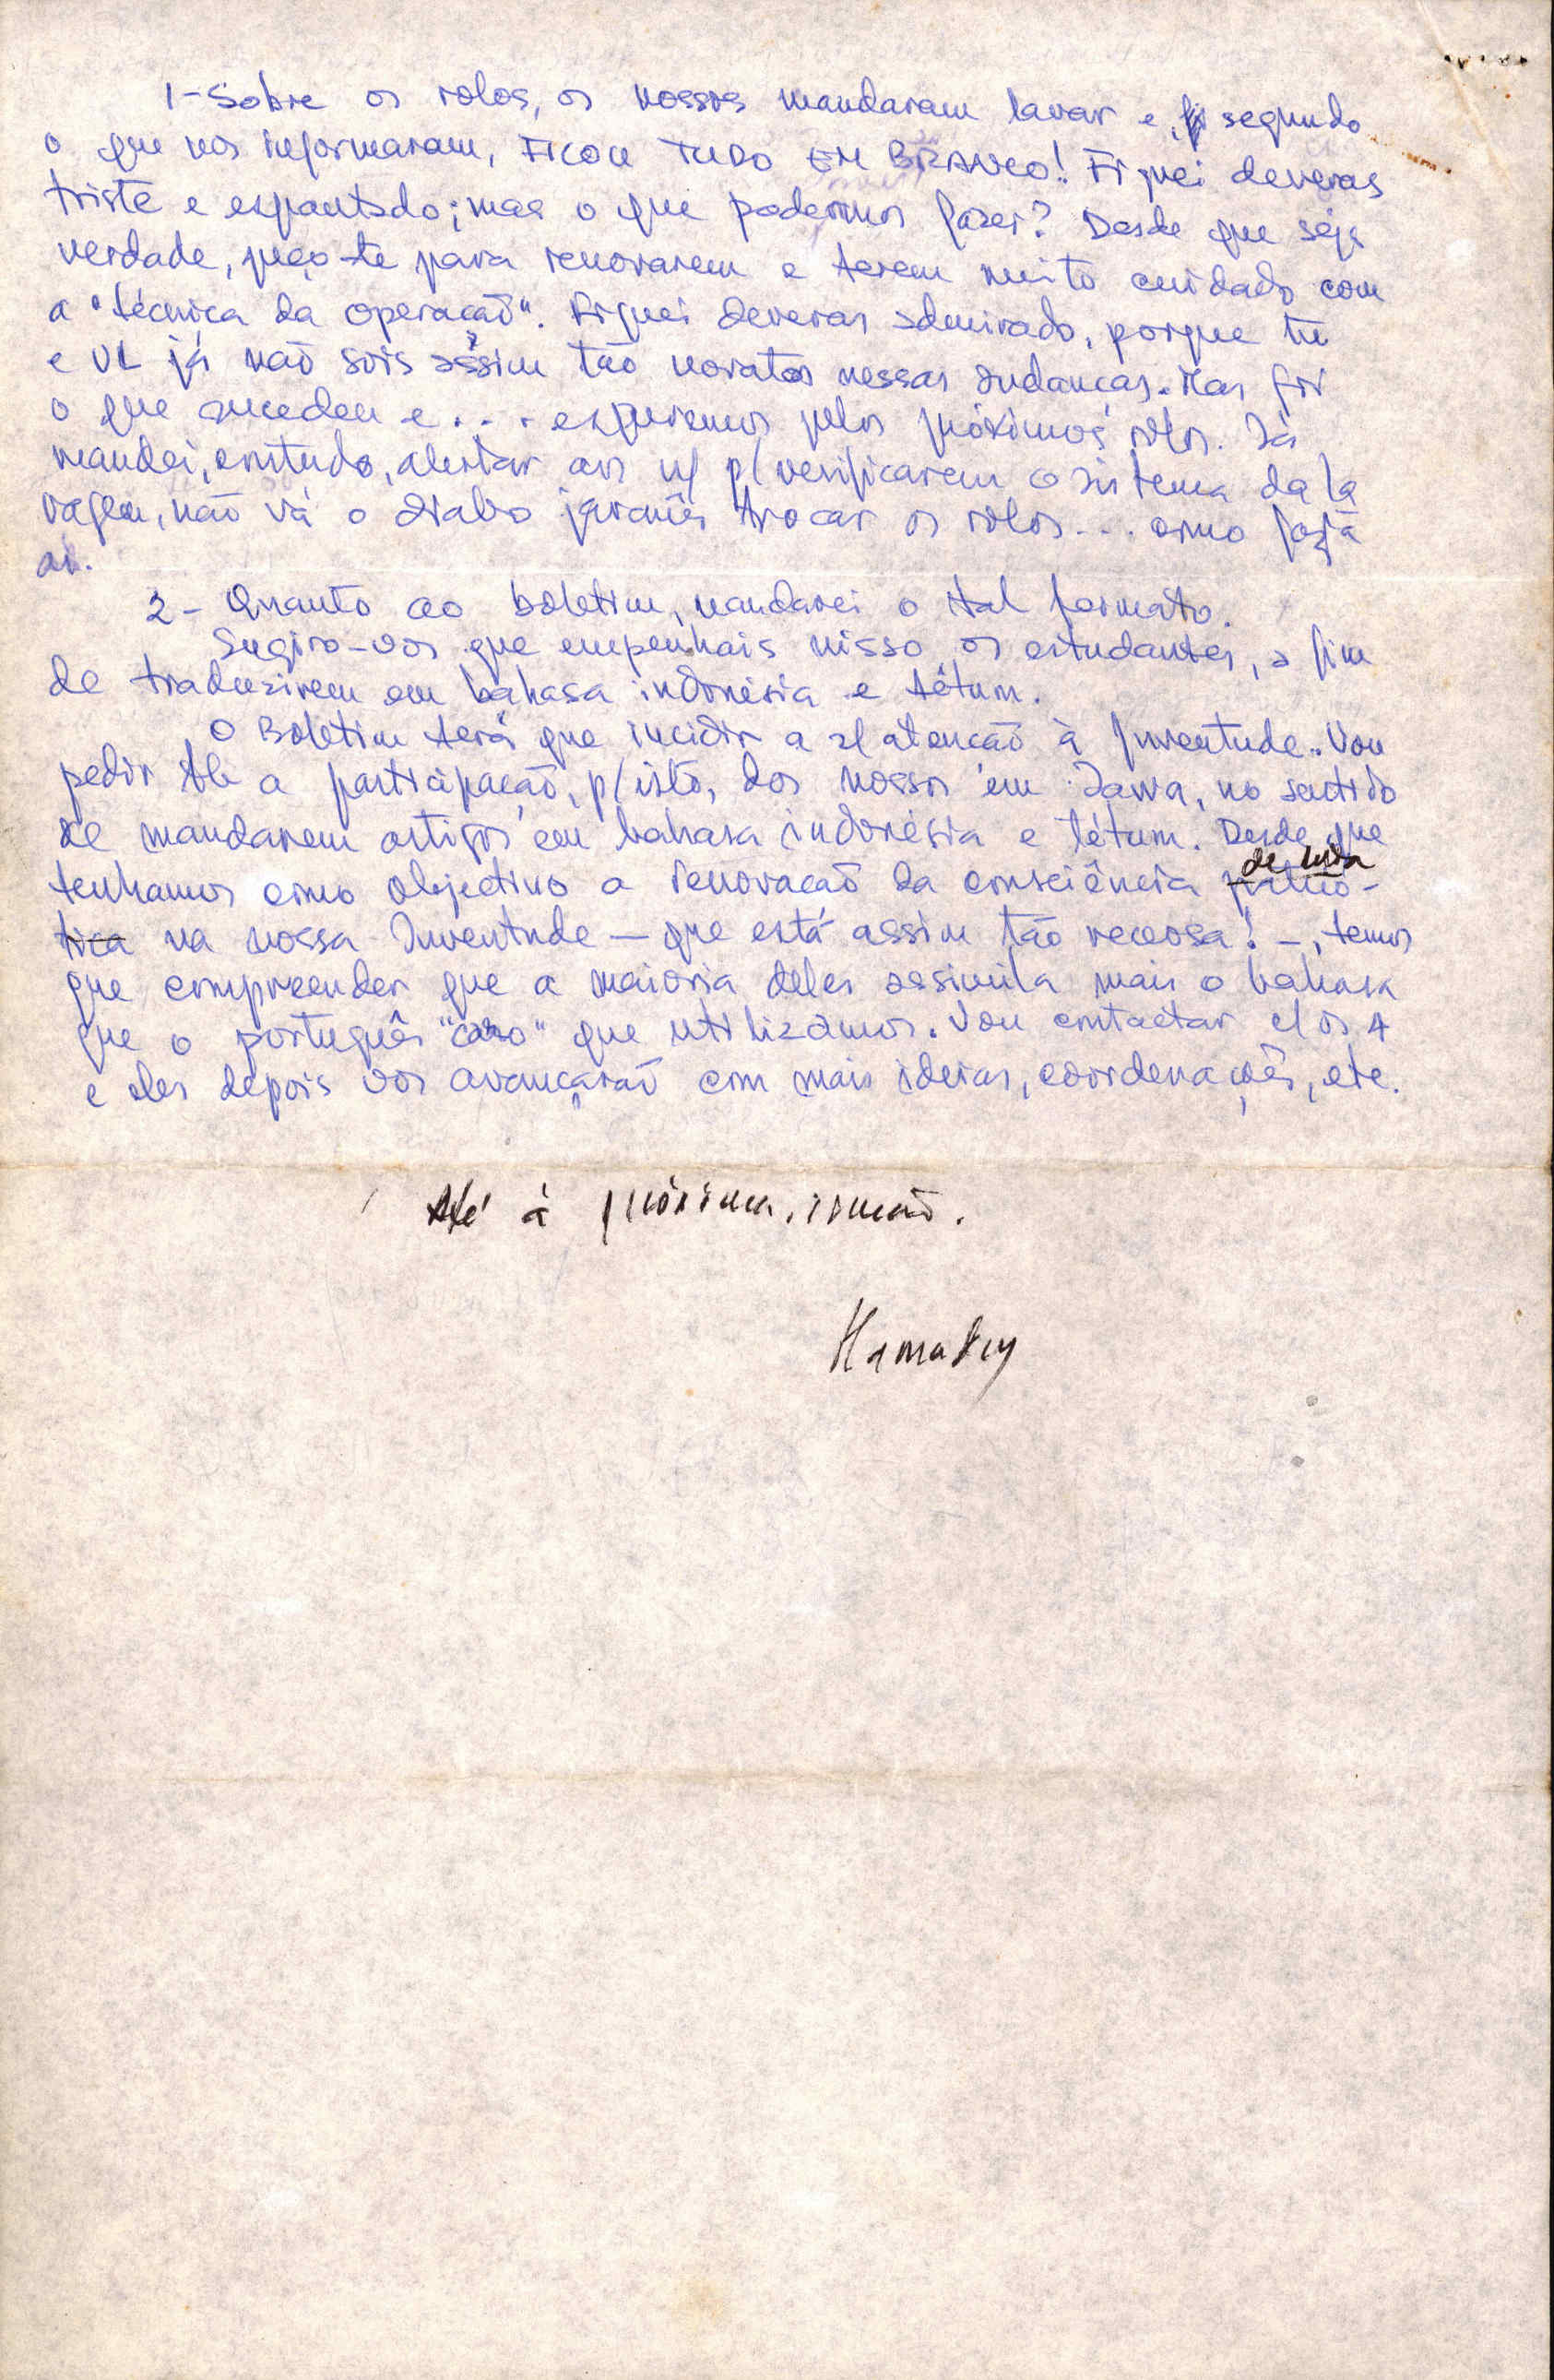 1-Sobre os rolos, os nossos mandaram lavar e, segundo
o que nos informaram, FICOU TUDO EM BRANCO! Fiquei deveras
triste e espantado; mas o que podermos fazer? Desde que seja
verdade, peço-te para renovarem e terem muito cuidado com
a "técnica da operação". Fiquei deveras admirado, porque tu
e VL já não sois assim tão novatos nessas andanças. Mas foi
o que sucedeu e... esperemos pelos próximos rolos. Já
mandei, contudo, alertar aos n/ p/ verificarem o sistema da la
vagem, não vá o diabo javanês trocar os rolos... como faz
aí.
2- Quanto ao boletim, mandarei o tal formato.
Sugiro-vos que empenhais nisso os estudantes, a fim
de traduzirem em bahasa indonésia e tétum.
O Boletim terá que incidir a s/ atenção à Juventude. Vou
pedir a participação, p/ isto, dos nossos em Jawa, no sentido
de mandarem artigos em bahasa indonésia e tétum. Desde que
tenhamos como objectivo a renovação da consciência patrió-
de luta
tica na nossa Juventude — que está assim tão receosa! —, temos
que compreender que a maioria deles assimila mais o bahasa
que o português "caro" que utilizamos. Vou contactar c/ os A
e eles depois vos avançarão com mais ideias, coordenações, etc.
Até à próxima, irmão.